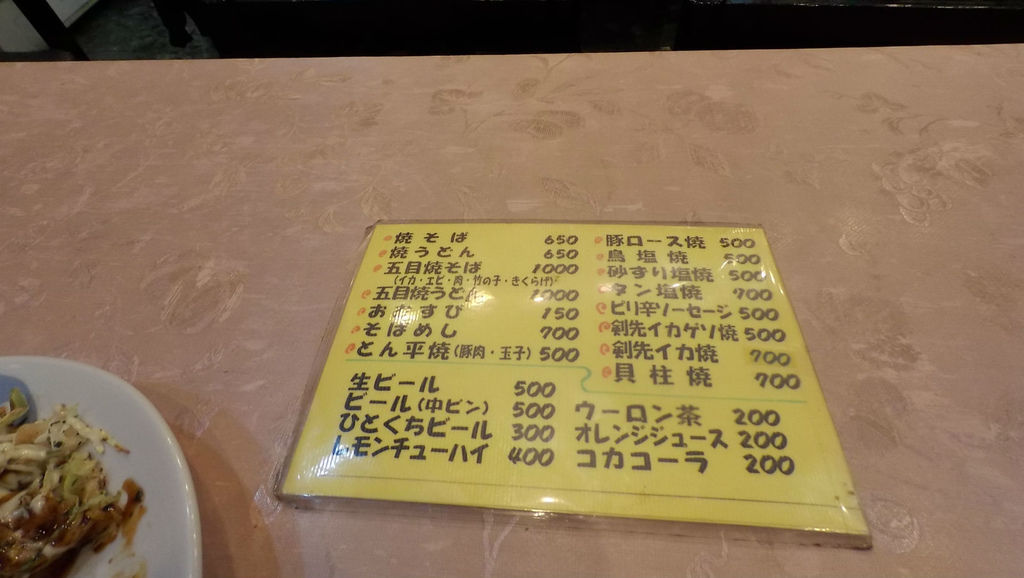 焼そば 650
焼うどん 650
五目焼そば 1000
(イカ・エビ・肉・竹の子・きくらげ)
五目焼うどん 1000
おむすび 150
そばめし 700
とん平焼(豚肉・玉子) 500
豚ロース焼 500
鳥塩焼 500
砂ずり塩焼 500
タン塩焼 700
ピリ辛ソーセージ 500
剣先イカゲソ焼 500
剣先イカ焼 700
貝柱焼 700
生ビール 500
ビール(中ビン) 500
ひとくちビール 300
レモンチューハイ 400
ウーロン茶 200
オレンジジュース 200
コカコーラ 200